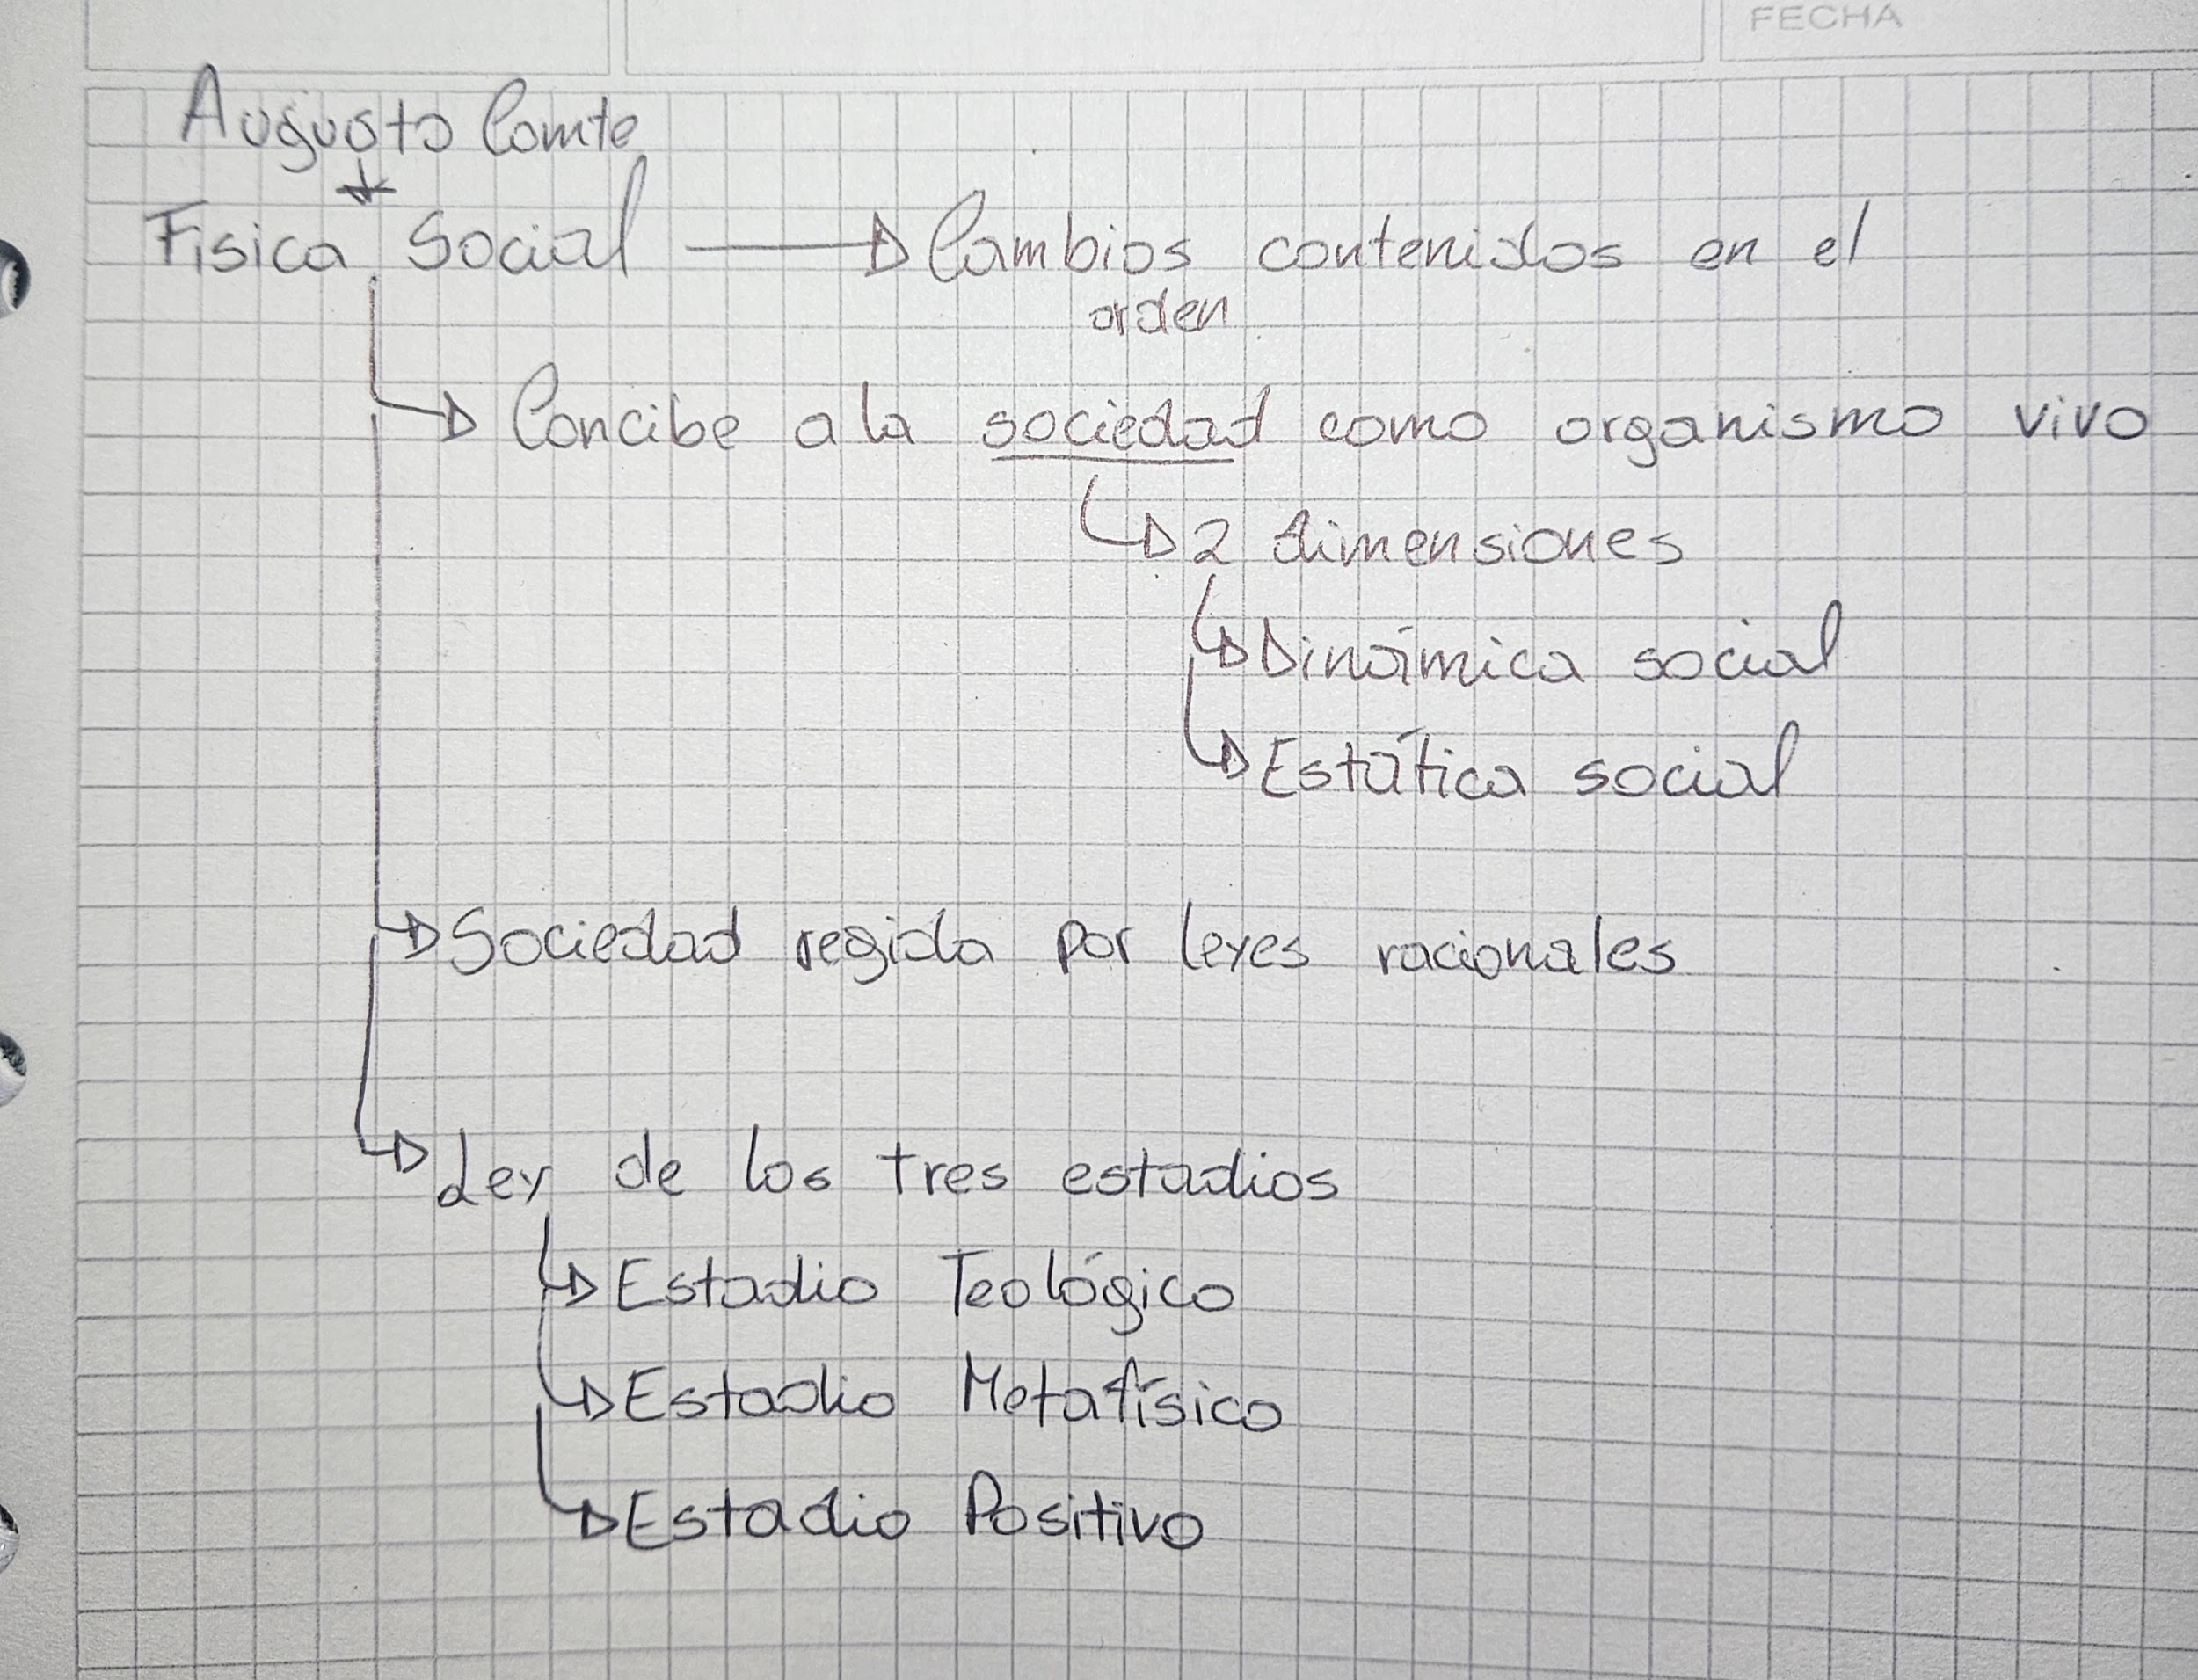 FECHA
Augusto Comte
Fisica Social → Cambios contenidos en el
orden
Concibe a la sociedad como organismo vivo
2 dimensiones
Dinámica social
Estática social
Sociedad regida por leyes racionales
Ley de los tres estadios
Estadio Teológico
Estadio Metafísico
Estadio Positivo